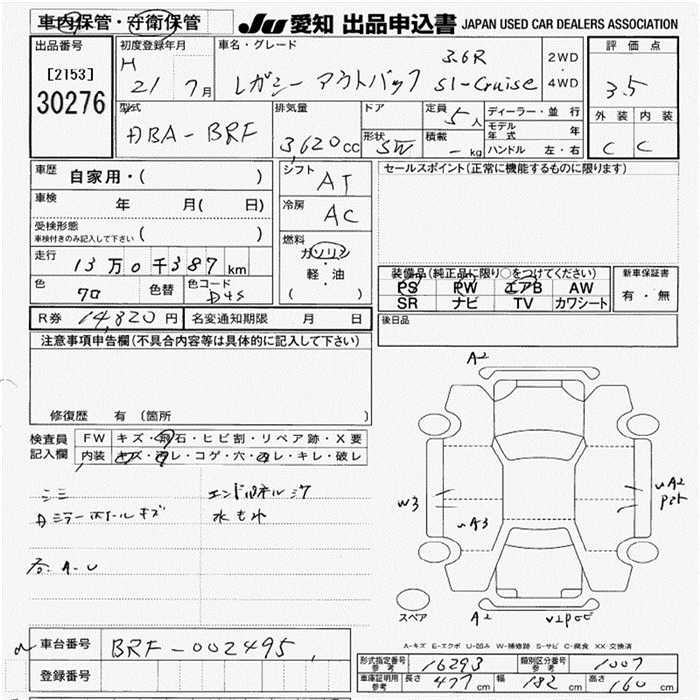 車内保管・守衛保管 JU 愛知 出品申込書 JAPAN USED CAR DEALERS ASSOCIATION
出品番号 初度登録年月 車名・グレード 評価点
[2153] H 3.6R 2WD
30276 21 7月 レガシー アウトバック SI-Cruise 4WD 3.5
型式 排気量 ドア 定員 5人 ディーラー・並行 外装 内装
DBA-BRF 3,620cc 形状 SW 積載 - kg モデル年式 年 C C
ハンドル 左・右
車歴 自家用・( ) シフト AT セールスポイント(正常に機能するものに限ります)
車検 年 月( 日) 冷房 AC
受検形態 ( )
車検付きのみ記入して下さい
燃料 ガソリン
走行 13万0千387km 軽・油
( )
装備品(純正品に限り○をつけてください) 新車保証書
色 クロ 色替 色コード D4S PS PW エアB AW 有・無
SR ナビ TV カワシート
R券 14,820円 名変通知期限 月 日 後日品
注意事項申告欄(不具合内容等は具体的に記入して下さい)
A2
修復歴 有 (箇所 )
検査員記入欄 FW キズ・飛石・ヒビ割・リペア跡・X要
内装 キズ・コゲ・穴・キレ・破レ
W3 A2
A3
水もれ
A-U
スペア A2
A-キズ E-エクボ U-凹み W-補修跡 S-サビ C-腐食 XX-交換済
車台番号 BRF-002495
形式指定番号 参考 16293 類別区分番号 参考 1007
登録番号 車庫証明用 参考 長さ 477cm 幅 182cm 高さ 160cm